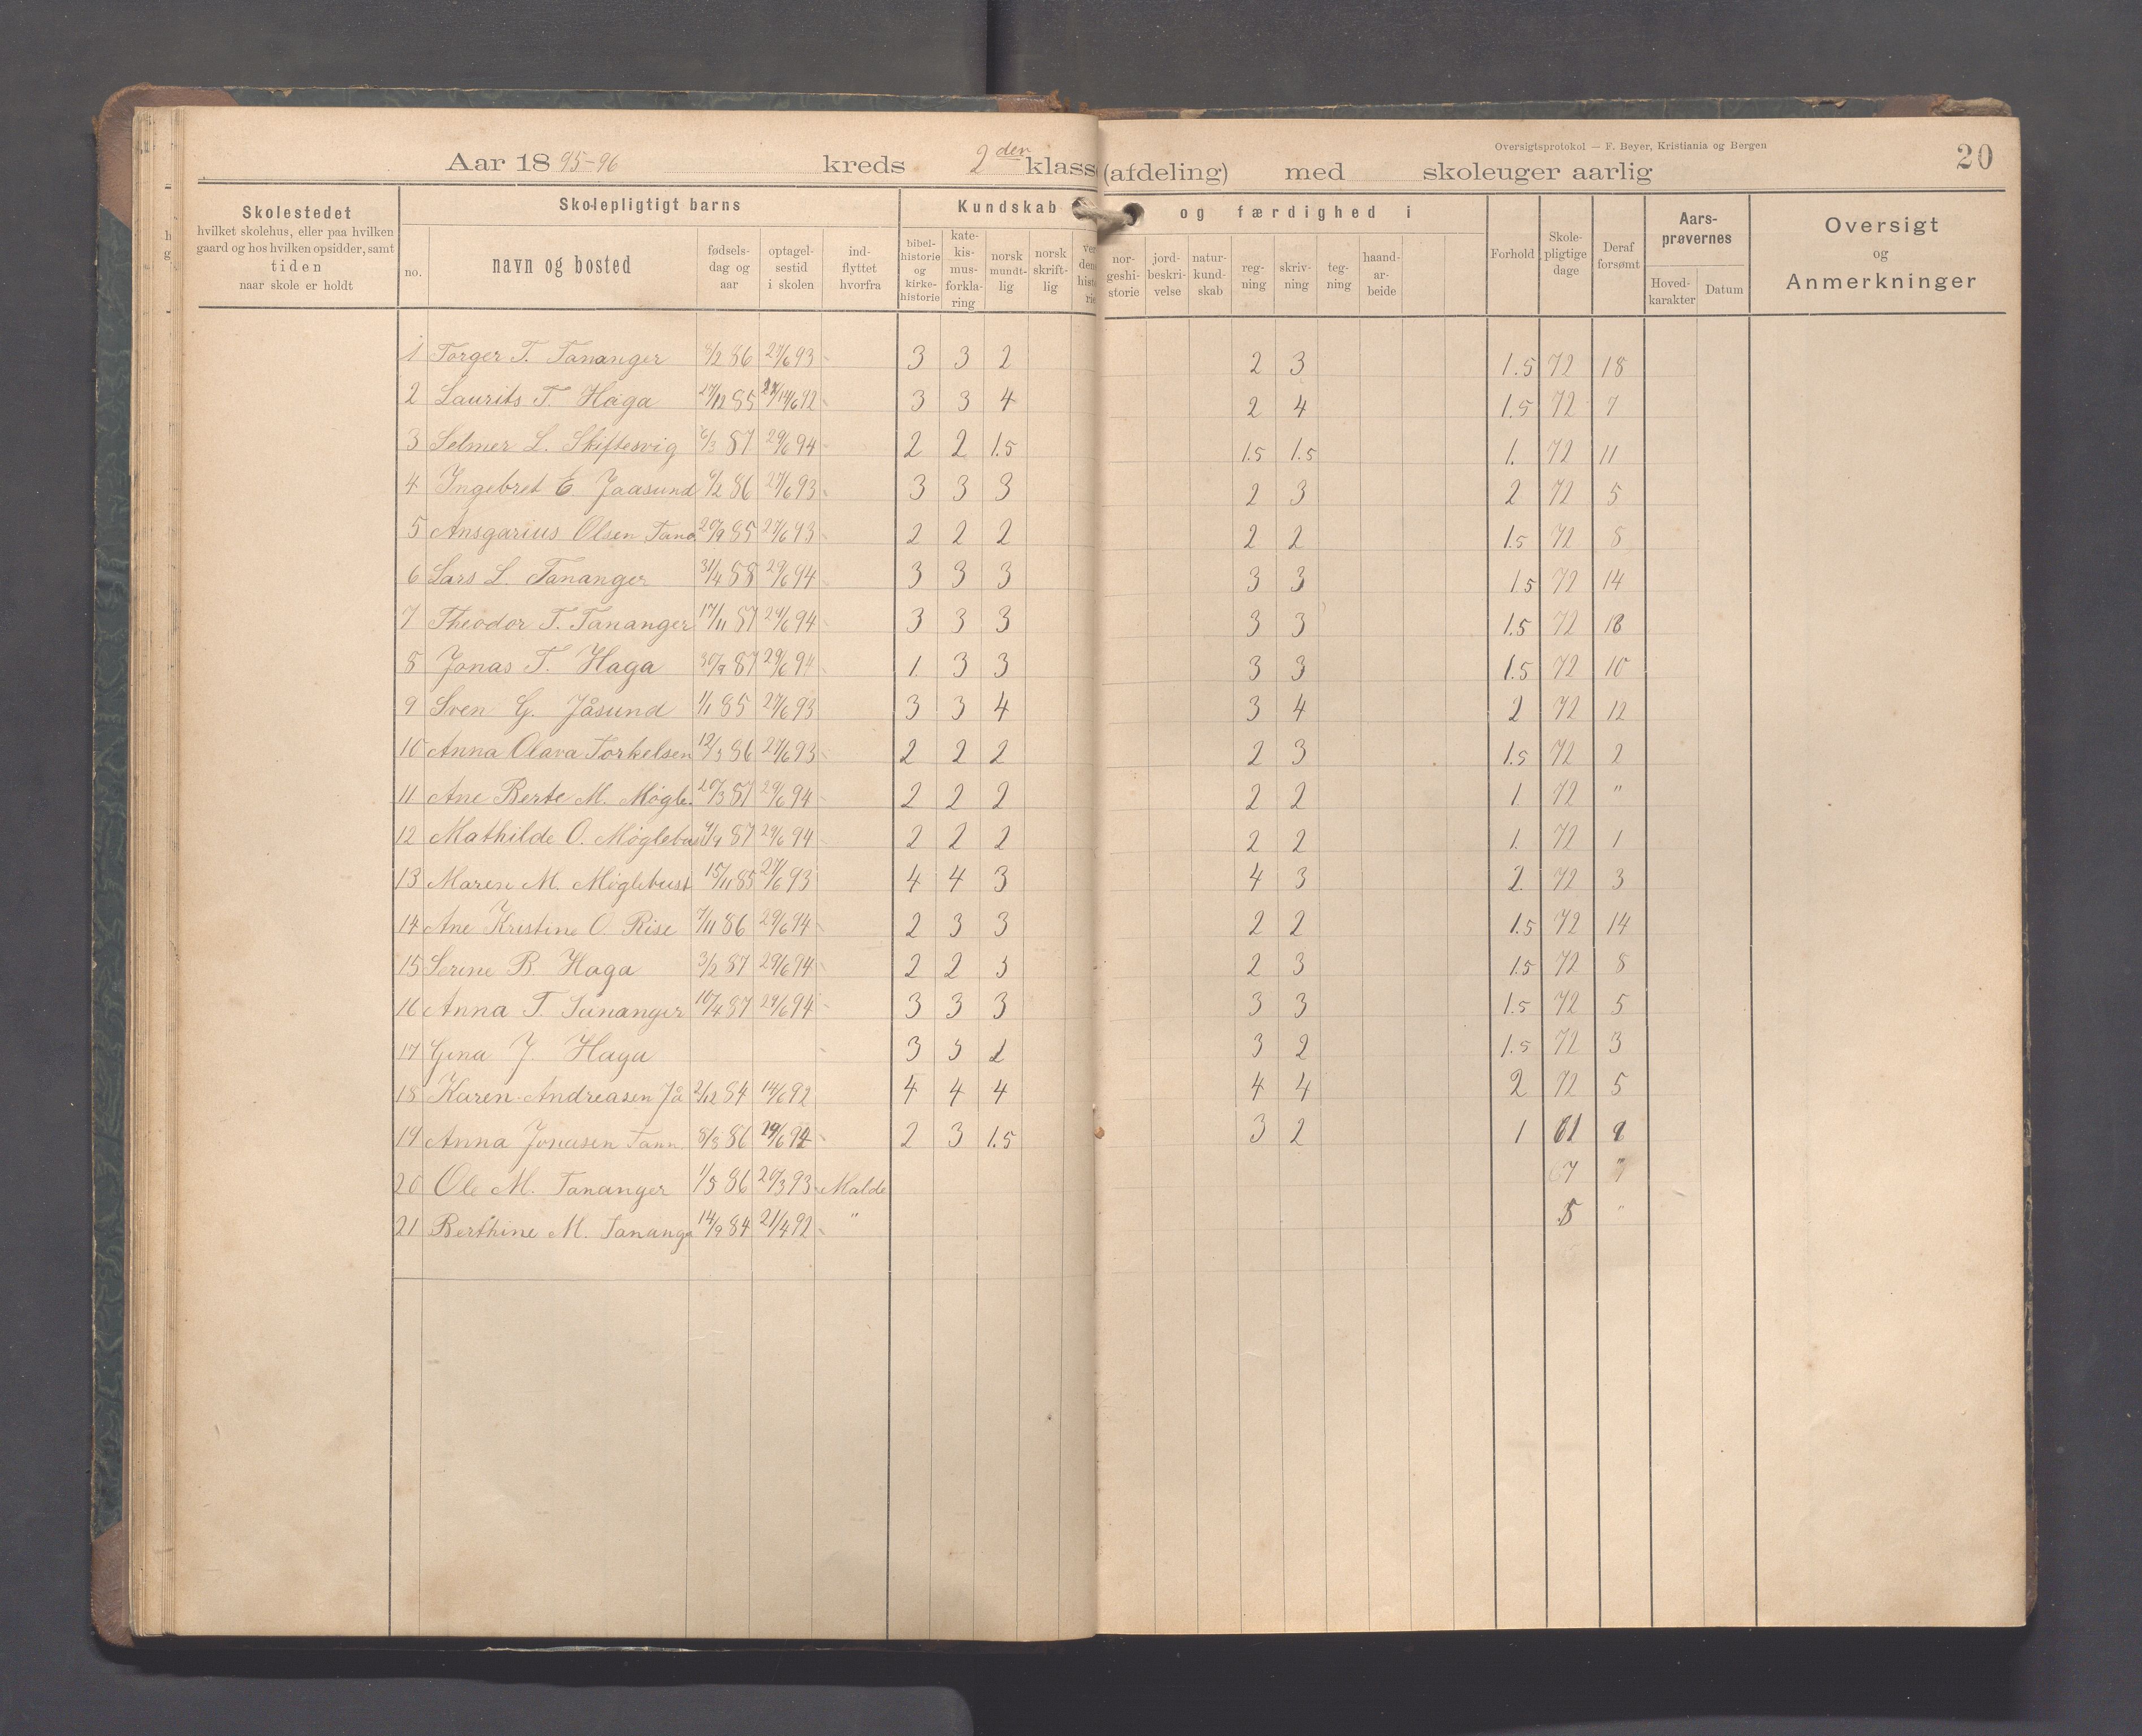 Oversigtsprotokol — F. Beyer, Kristiania og Bergen
20
Aar 1895-96 kreds 2den klasse (afdeling) med skoleuger aarlig
Skolestedet
hvilket skolehus, eller paa hvilken
gaard og hos hvilken opsidder, samt
tiden
naar skole er holdt
Skolepligtigt barns
no.
navn og bosted
fødsels-
dag og
aar
optagel-
sestid
i skolen
ind-
flyttet
hvorfra
Kundskab og færdighed i
bibel-
historie
og
kirke-
historie
kate-
kis-
mus-
forkla-
ring
norsk
mundt-
lig
norsk
skrift-
lig
nor-
geshi-
storie
jord-
beskri-
velse
natur-
kund-
skab
reg-
ning
skriv-
ning
teg-
ning
haand-
ar-
beide
Forhold
Skole-
pligtige
dage
Deraf
forsømt
Aars-
prøvernes
Hoved-
karakter
Datum
Oversigt
og
Anmerkninger
1 Torger T. Tananger /2 86 27/6 93 3 3 2 2 3 1.5 72 18
2 Laurits T. Haga /12 85 3 3 4 2 4 1.5 72 7
3 Selmer L. Skiftesvig /3 87 29/6 94 2 2 1.5 1.5 1.5 1. 72 11
4 Ingebret E. Jaasund /2 86 27/6 93 3 3 3 2 3 2 72 5
5 Ansgarius Olsen Tana 20/9 85 27/6 93 2 2 2 2 2 1.5 72 8
6 Lars L. Tananger 31/4 88 29/6 94 3 3 3 3 3 1.5 72 14
7 Theodor T. Tananger 17/11 87 29/6 94 3 3 3 3 3 1.5 72 18
8 Jonas T. Haga 30/9 87 29/6 94 1. 3 3 3 3 1.5 72 10
9 Sven G. Jåsund 1/1 85 27/6 93 3 3 4 3 4 2 72 12
10 Anna Olava Torkelsen 12/3 86 27/6 93 2 2 2 2 3 1.5 72 2
11 Ane Berte M. Møgle. 20/3 87 29/6 94 2 2 2 2 2 1. 72 "
12 Mathilde O. Møglebust /9 87 29/6 94 2 2 2 2 2 1. 72 1
13 Maren M. Møglebust 15/11 85 27/6 93 4 4 3 4 3 2. 72 3
14 Ane Kristine O. Rise 7/11 86 29/6 94 2 3 3 2 2 1.5 72 14
15 Serine B. Haga 3/2 87 29/6 94 2 2 3 2 3 1.5 72 8
16 Anna T. Tananger 10/4 87 29/6 94 3 3 3 3 3 1.5 72 5
17 Gina J. Haga 3 3 2 3 2 1.5 72 3
18 Karen Andreasen Jå 2/12 84 14/6 92 4 4 4 4 4 2 72 5
19 Anna Jonasen Tann. 8/3 86 /6 2 3 1.5 3 2 1 61 9
20 Ole M. Tananger 1/5 86 20/3 93 Malde 67 "
21 Berthine M. Tananger 14/9 84 21/4 92 " 5 "